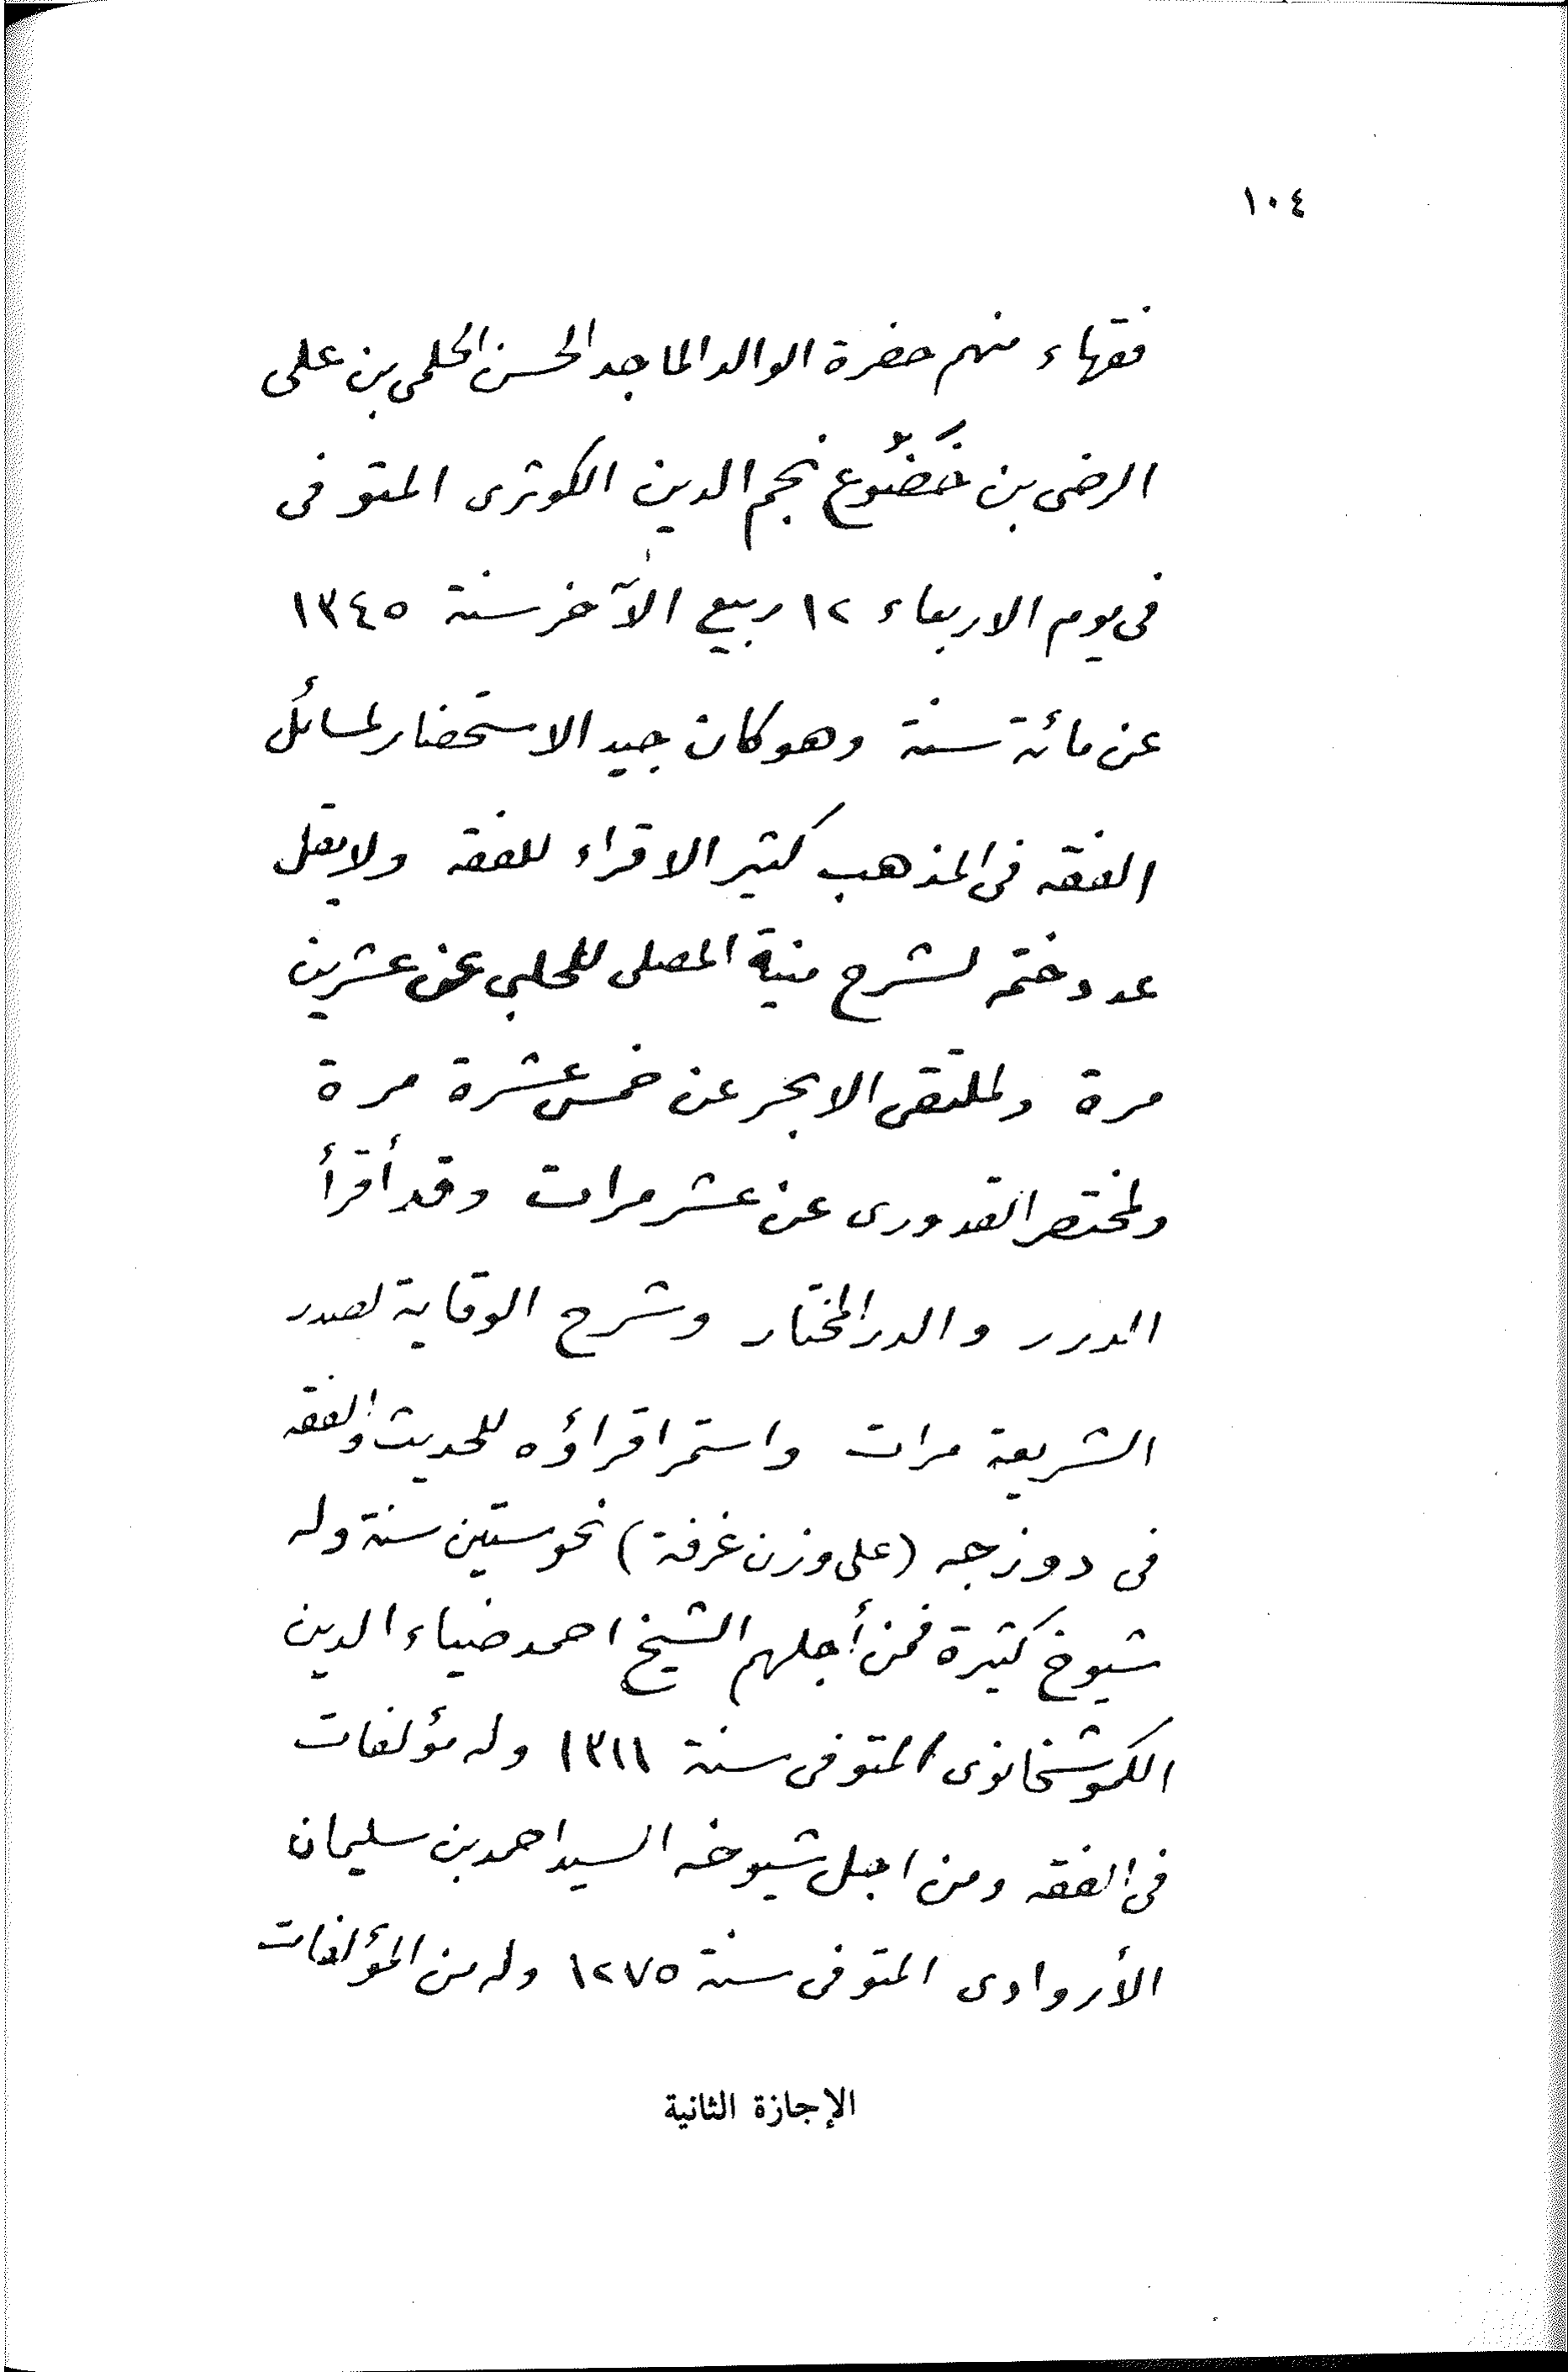 ١٠٤
فقهاء منهم حضرة الوالد الماجد الحسن الحلمى بن على
الرضى بن خَضُوع نجم الدين الكوثرى المتوفى
فى يوم الاربعاء ١٢ ربيع الآخر سنة ١٣٤٥
عن مائة سنة وهو كان جيد الاستحضار لمسائل
الفقه فى المذهب كثير الاقراء للفقه ولا يقل
عدد ختمه لشرح منية المصلى للحلبى عن عشرين
مرة ولملتقى الابحر عن خمس عشرة مرة
ولمختصر القدورى عن عشر مرات وقد أقرأ
الدرر والدر المختار وشرح الوقاية لصدر
الشريعة مرات واستمر اقراؤه للحديث والفقه
فى دوزجه (على وزن غرفة) نحو ستين سنة وله
شيوخ كثيرة فمن أجلهم الشيخ احمد ضياء الدين
الكموشخانوى المتوفى سنة ١٣١١ وله مؤلفات
فى الفقه ومن اجل شيوخه السيد احمد بن سليمان
الأروادى المتوفى سنة ١٢٧٥ وله من المؤلفات
الإجازة الثانية